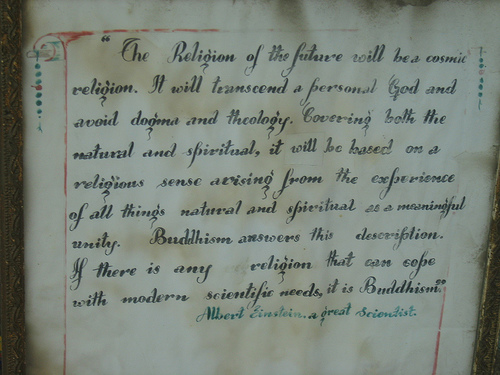 "The Religion of the future will be a cosmic
religion. It will transcend a personal God and
avoid dogma and theology. Covering both the
natural and spiritual, it will be based on a
religious sense arising from the experience
of all things natural and spiritual as a meaningful
unity. Buddhism answers this description.
If there is any religion that can cope
with modern scientific needs, it is Buddhism."
Albert Einstein. a great Scientist.